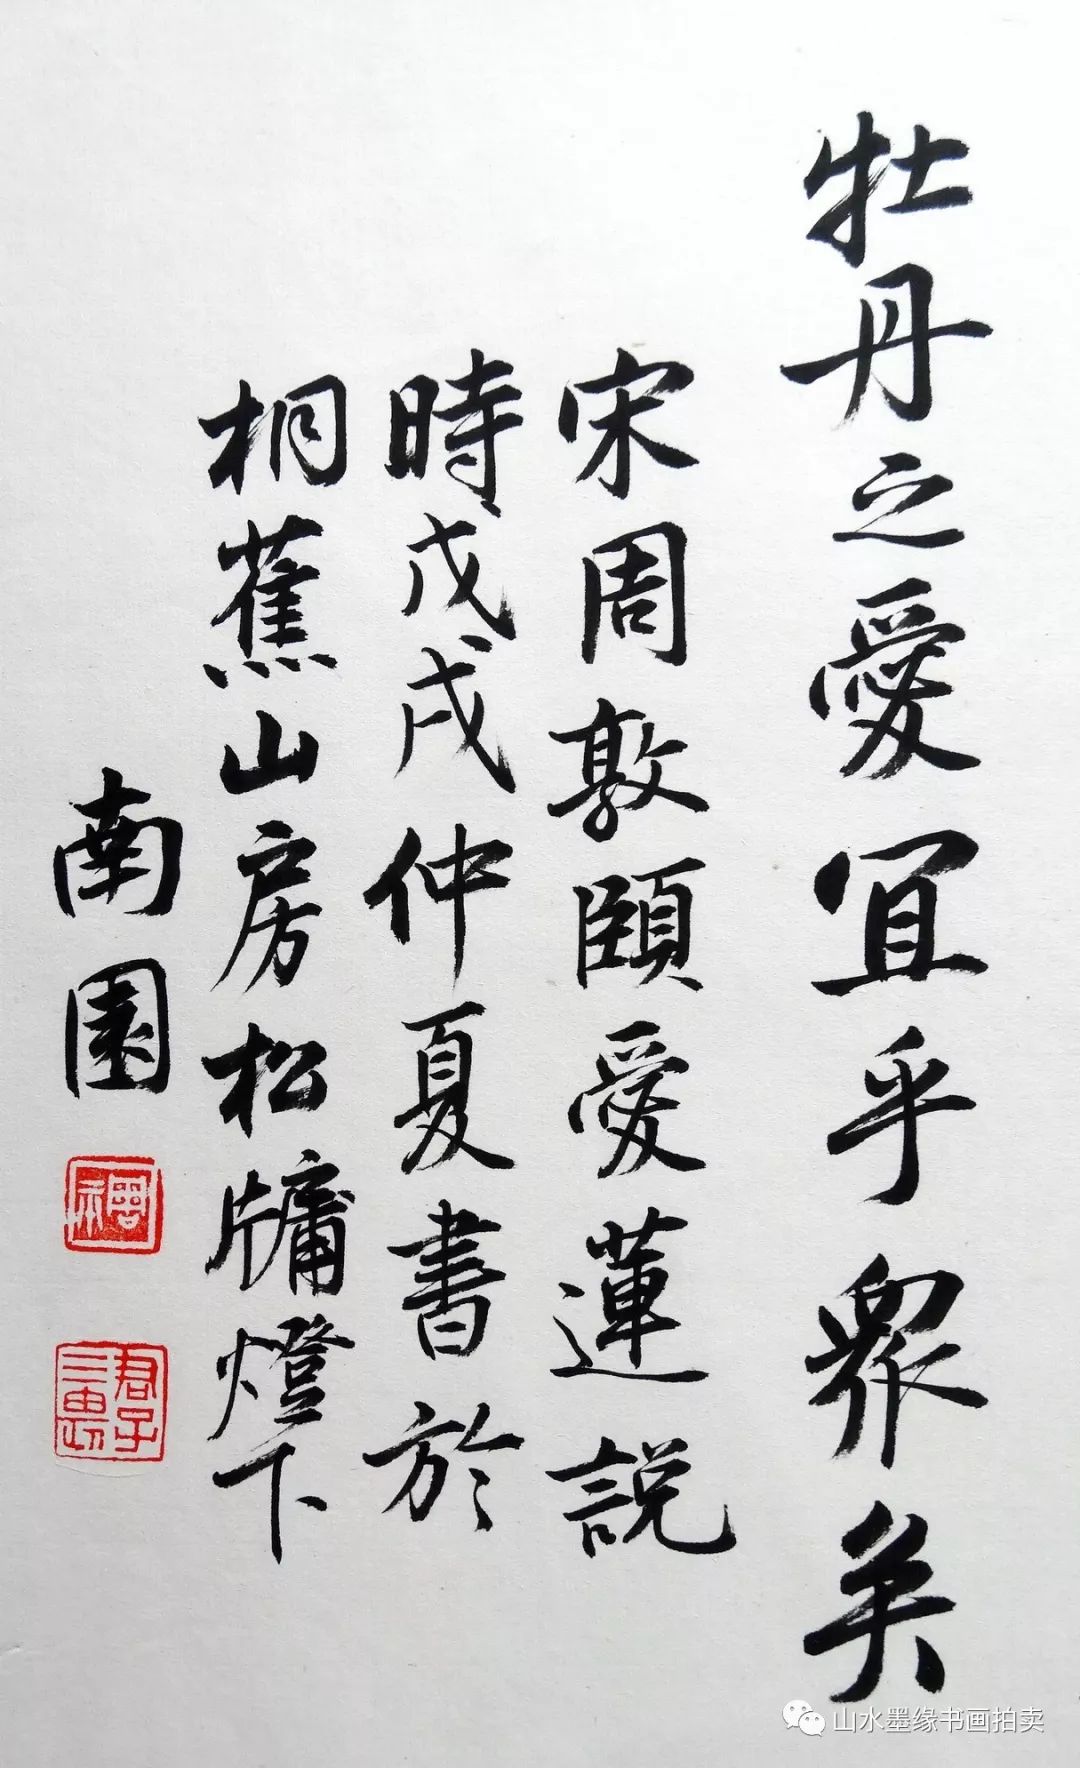 牡丹之愛宜乎眾矣
宋周敦頤愛蓮說
時戊戌仲夏書於
桐蕉山房松牖燈下
南園
君子
山水墨缘书画拍卖